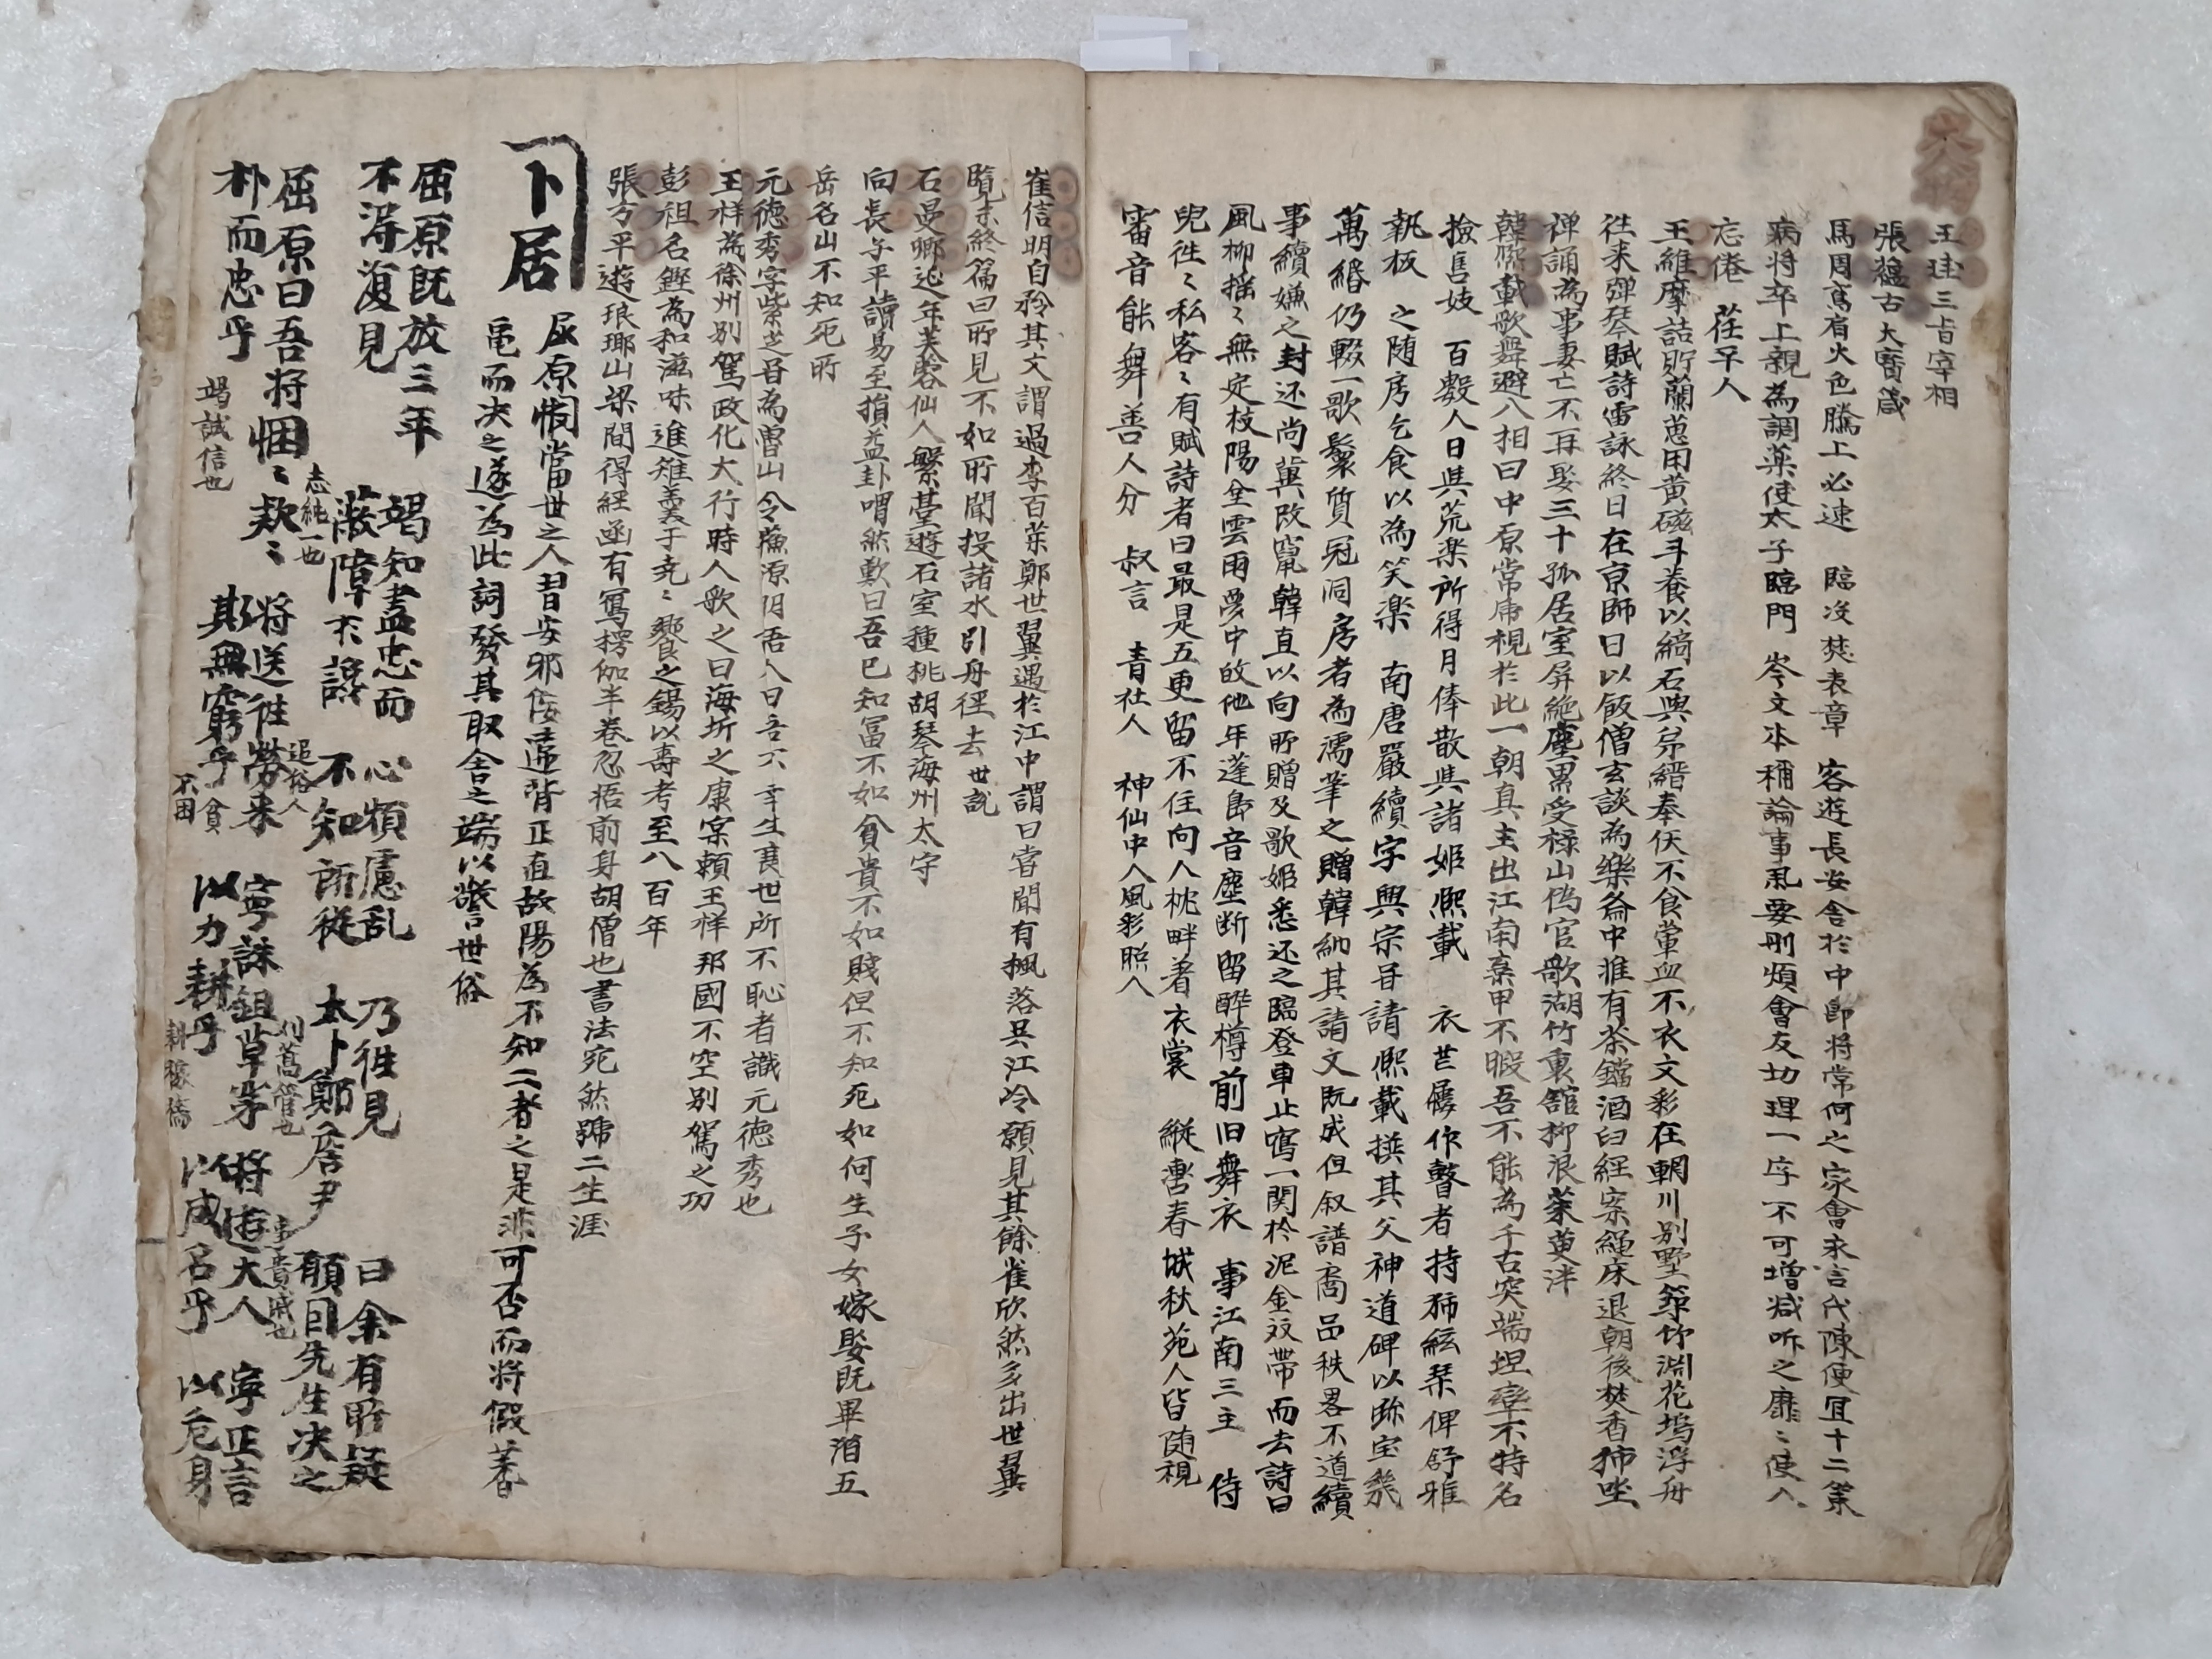 王珪三旨宰相
張蘊古大寶箴
馬周鳶肩火色騰上必速 臨沒焚表章 客遊長安舍於中郎將常何之家會求言代陳便宜十二策
病將卒上親為調藥使太子臨門 岑文本稱論事 要刪煩會友切理一字不可增減听之靡〻使人
忘倦 茌平人
王維摩詰貯蘭蔥用黃磁斗養以綺石與弟縉奉仸不食葷血不衣文彩在輞川別墅 竹淵花塢浮舟
往來彈琴賦詩雷詠終日在京師日以飯僧玄談為樂齋中惟有茶鐺酒臼經案繩床退朝後焚香 坐
禅誦為事妻亡不再娶三十孤居室屏絶塵累受祿山偽官歌湖竹裏舘柳浪茱萸泮
韓熙載歌舞避八相曰中原常 視於此一朝真主出江南棄甲不暇吾不能為千古突端坦 不特名
撿 妓 百數人日與荒楽所得月俸散與諸姬熙載 衣芒屩作瞽者持 絃琹俾舒雅
執板 之随房乞食以為笑楽 南唐嚴續字興宗 請熙載撰其父神道碑以 宝幾
萬緡仍輟一歌鬟質冠洞房者為濡筆之贈韓納其請文既成但叙譜裔品秩畧不道續
事續嫌之封还尚冀改竄韓直以向所贈及歌姬悉还之臨登車止寫一関於泥金双帶而去詩曰
風柳揺〻無定枝陽坮雲雨夢中 他年蓬島音塵断留酔樽前旧舞衣 事江南三主 侍
兒徃〻私客〻有賦詩者曰最是五更留不住向人枕畔着衣裳 縦 春城秋苑人皆随視
審音能舞善人分 叔言 青社人 神仙中人風彩照人
崔信明自矜其文謂過李百葯鄭世翼遇於江中謂曰嘗聞有楓落吳江冷願見其餘崔欣然多出世翼
覽未終篇曰所見不如所聞投諸水引舟徑去世說
石曼卿 年芙蓉仙人繁臺遊石室種桃胡琴海州太守
向長子平讀易至損益卦喟然歎曰吾已知富不如貧貴不如賤但不知死如何生子女嫁娶既畢 五
岳名山不知死所
元德秀字紫芝 為曾山令蘇源明語人曰吾不幸生衰世所不恥者識元德秀也
王祥為徐州別駕政化大行時人歌之曰海圻之康宲賴王祥邦國不空別駕之功
彭祖名鏗為和滋味進雉羹于尭〻饗之錫以壽考至八百年
張方平遊琅琊山梁間得經函有寫楞伽半卷忽悟前身胡僧也書法宛然號二生涯
卜居
屈原憫當世之人習安邪佞違背正直故陽為不知二者之是非可否而將假蓍
亀而决之遂為此詞發其取舍之端以警世俗
屈原既放三年 竭知盡忠而 心煩慮乱 乃徃見 曰余有所疑
不得復見 蔽障於讒 不知所從 太卜鄭詹尹 願因先生决之
屈原曰吾将悃〻款〻 志純一也 将送徃勞来 追俗人 寧誅鉏草茅 刈菖管也 将遊大人 事貴戚也 寧正言
朴而忠乎 竭誠信也 斯無窮乎 不困貧 以力耕乎 耕稼穡 以成名乎 以危身